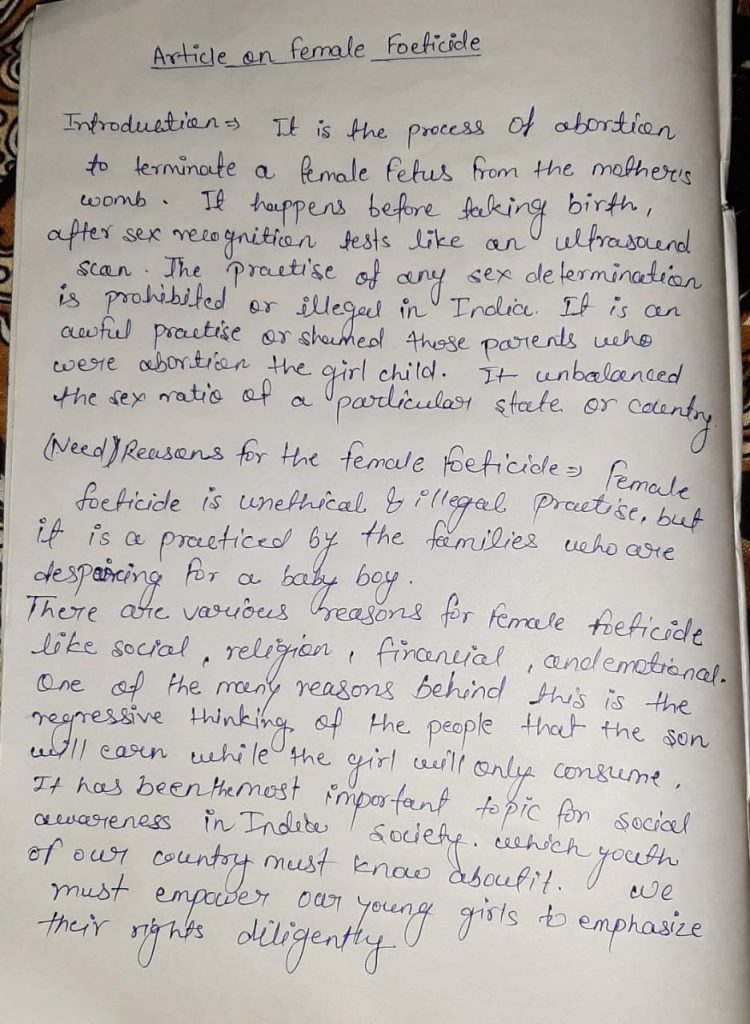 Article on female Foeticide
Introduction ⇒ It is the process of abortion
to terminate a female fetus from the mother's
womb. It happens before taking birth,
after sex recognition tests like an ultrasound
scan. The practise of any sex determination
is prohibited or illegal in India. It is an
awful practise or shamed those parents who
were abortion the girl child. It unbalanced
the sex ratio of a particular state or country
(Need) Reasons for the female foeticide ⇒ female
foeticide is unethical & illegal practise, but
it is a practiced by the families who are
despairing for a baby boy.
There are various reasons for female foeticide
like social, religion, financial, and emotional.
One of the many reasons behind this is the
regressive thinking of the people that the son
will earn while the girl will only consume.
It has been the most important topic for social
awareness in India society. which youth
of our country must know about it. we
must empower our young girls to emphasize
their rights diligently